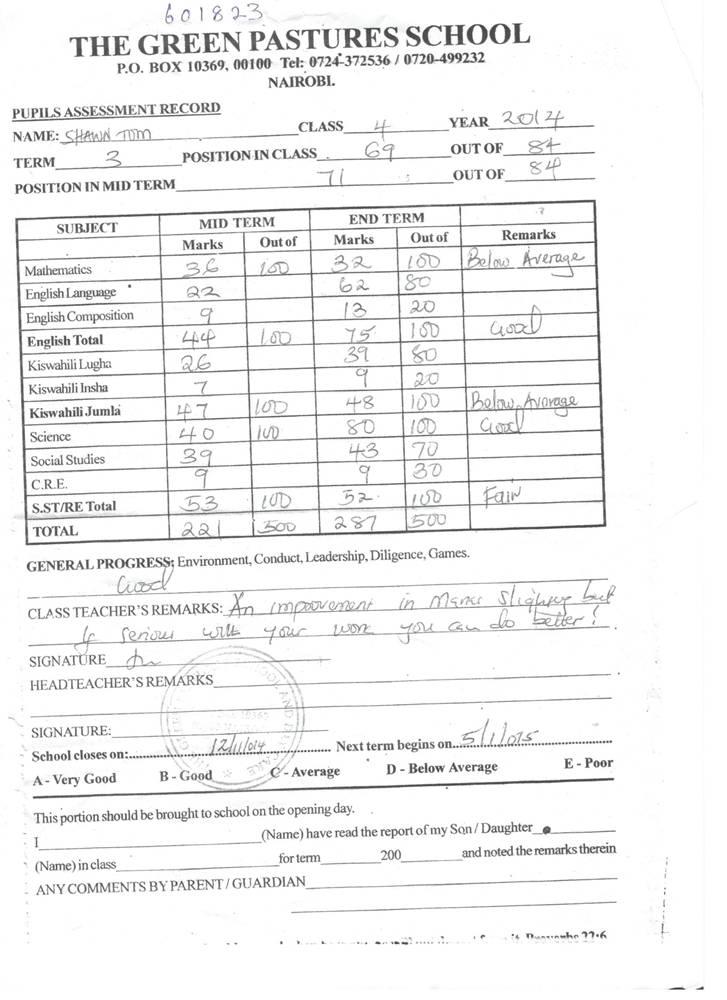 601823
THE GREEN PASTURES SCHOOL
P.O. BOX 10369, 00100 Tel: 0724-372536 / 0720-499232
NAIROBI.
PUPILS ASSESSMENT RECORD
NAME: SHAWN TOM CLASS 4 YEAR 2014
TERM 3 POSITION IN CLASS 69 OUT OF 84
POSITION IN MID TERM 71 OUT OF 84
SUBJECT MID TERM END TERM
Marks Out of Marks Out of Remarks
Mathematics 36 100 32 100 Below Average
English Language 22 62 80
English Composition 9 13 20
English Total 44 100 75 100 Good
Kiswahili Lugha 26 39 80
Kiswahili Insha 7 9 20
Kiswahili Jumla 47 100 48 100 Below Avarage
Science 40 100 80 100 Good
Social Studies 39 43 70
C.R.E. 9 9 30
S.ST/RE Total 53 100 52 100 Fair
TOTAL 221 500 287 500
GENERAL PROGRESS: Environment, Conduct, Leadership, Diligence, Games.
Good
CLASS TEACHER'S REMARKS: An improvement in Marks slightly but
If serious with your work you can do better!
SIGNATURE
HEADTEACHER'S REMARKS
SIGNATURE:
School closes on: 12/11/014 Next term begins on 5/1/015
A - Very Good B - Good C - Average D - Below Average E - Poor
This portion should be brought to school on the opening day.
I (Name) have read the report of my Son / Daughter
(Name) in class for term 200 and noted the remarks therein
ANY COMMENTS BY PARENT / GUARDIAN
22:6